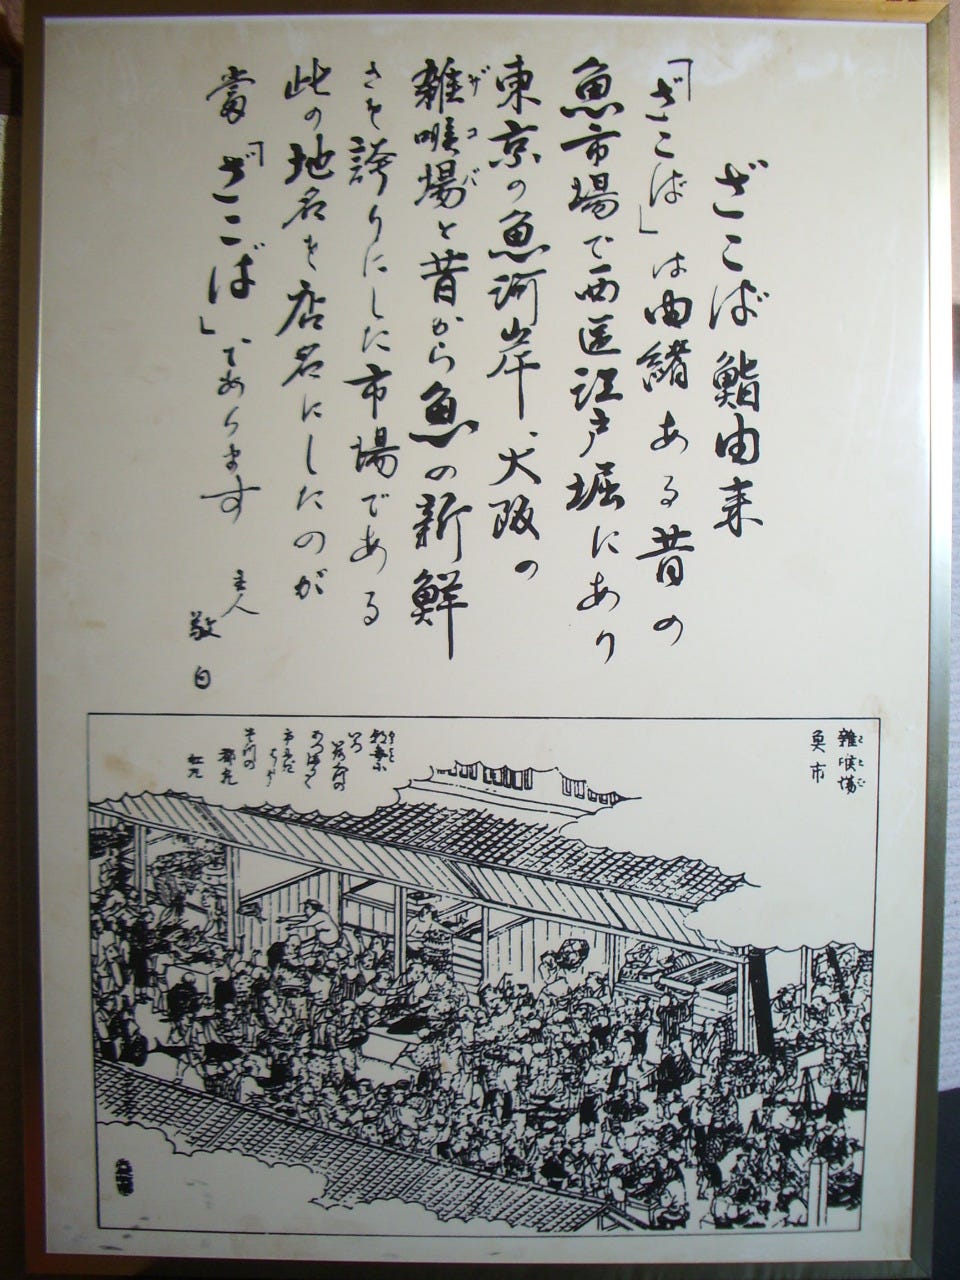 ざこば 鮨由来
「ざこば」は由緒ある昔の
魚市場で西区江戸堀にあり
東京の魚河岸、大阪の
雑喉場と昔から魚の新鮮
ザコバ
さを誇りにした市場である
此の地名を店名にしたのが
當「ざこば」であります
主人
敬白
雑喉場
魚市